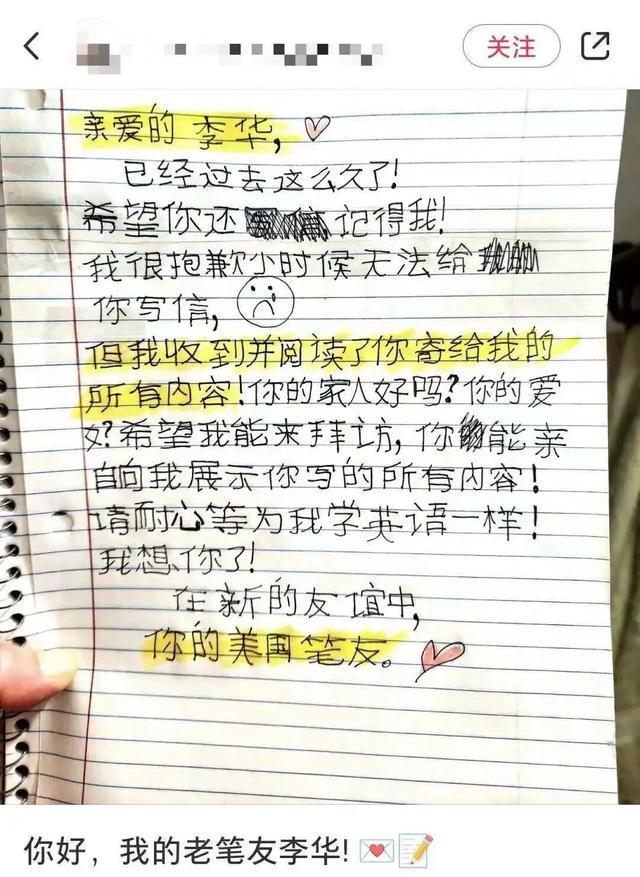 关注
亲爱的 李华,
已经过去这么久了!
希望你还 记得我!
我很抱歉小时候无法给
你写信,
但我收到并阅读了你寄给我的
所有内容!你的家人好吗?你的爱
好?希望我能来拜访,你能亲
自向我展示你写的所有内容!
请耐心等为我学英语一样!
我想你了!
在新的友谊中,
你的美国笔友。
你好,我的老笔友李华! 💌📝